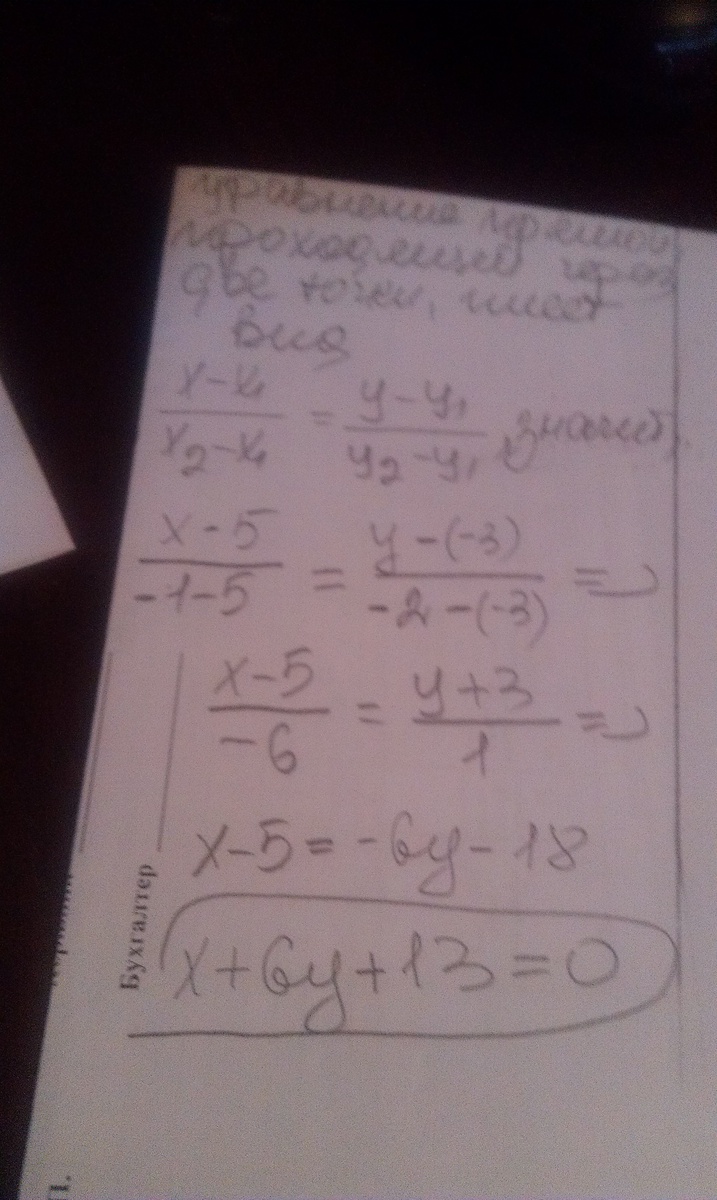 уравнение прямой
проходящей через
две точки, имеет
вид
x-x₁/x₂-x₁ = y-y₁/y₂-y₁, значит,
x-5/-1-5 = y-(-3)/-2-(-3) =>
x-5/-6 = y+3/1 =>
x-5=-6y-18
x+6y+13=0
Бухгалтер